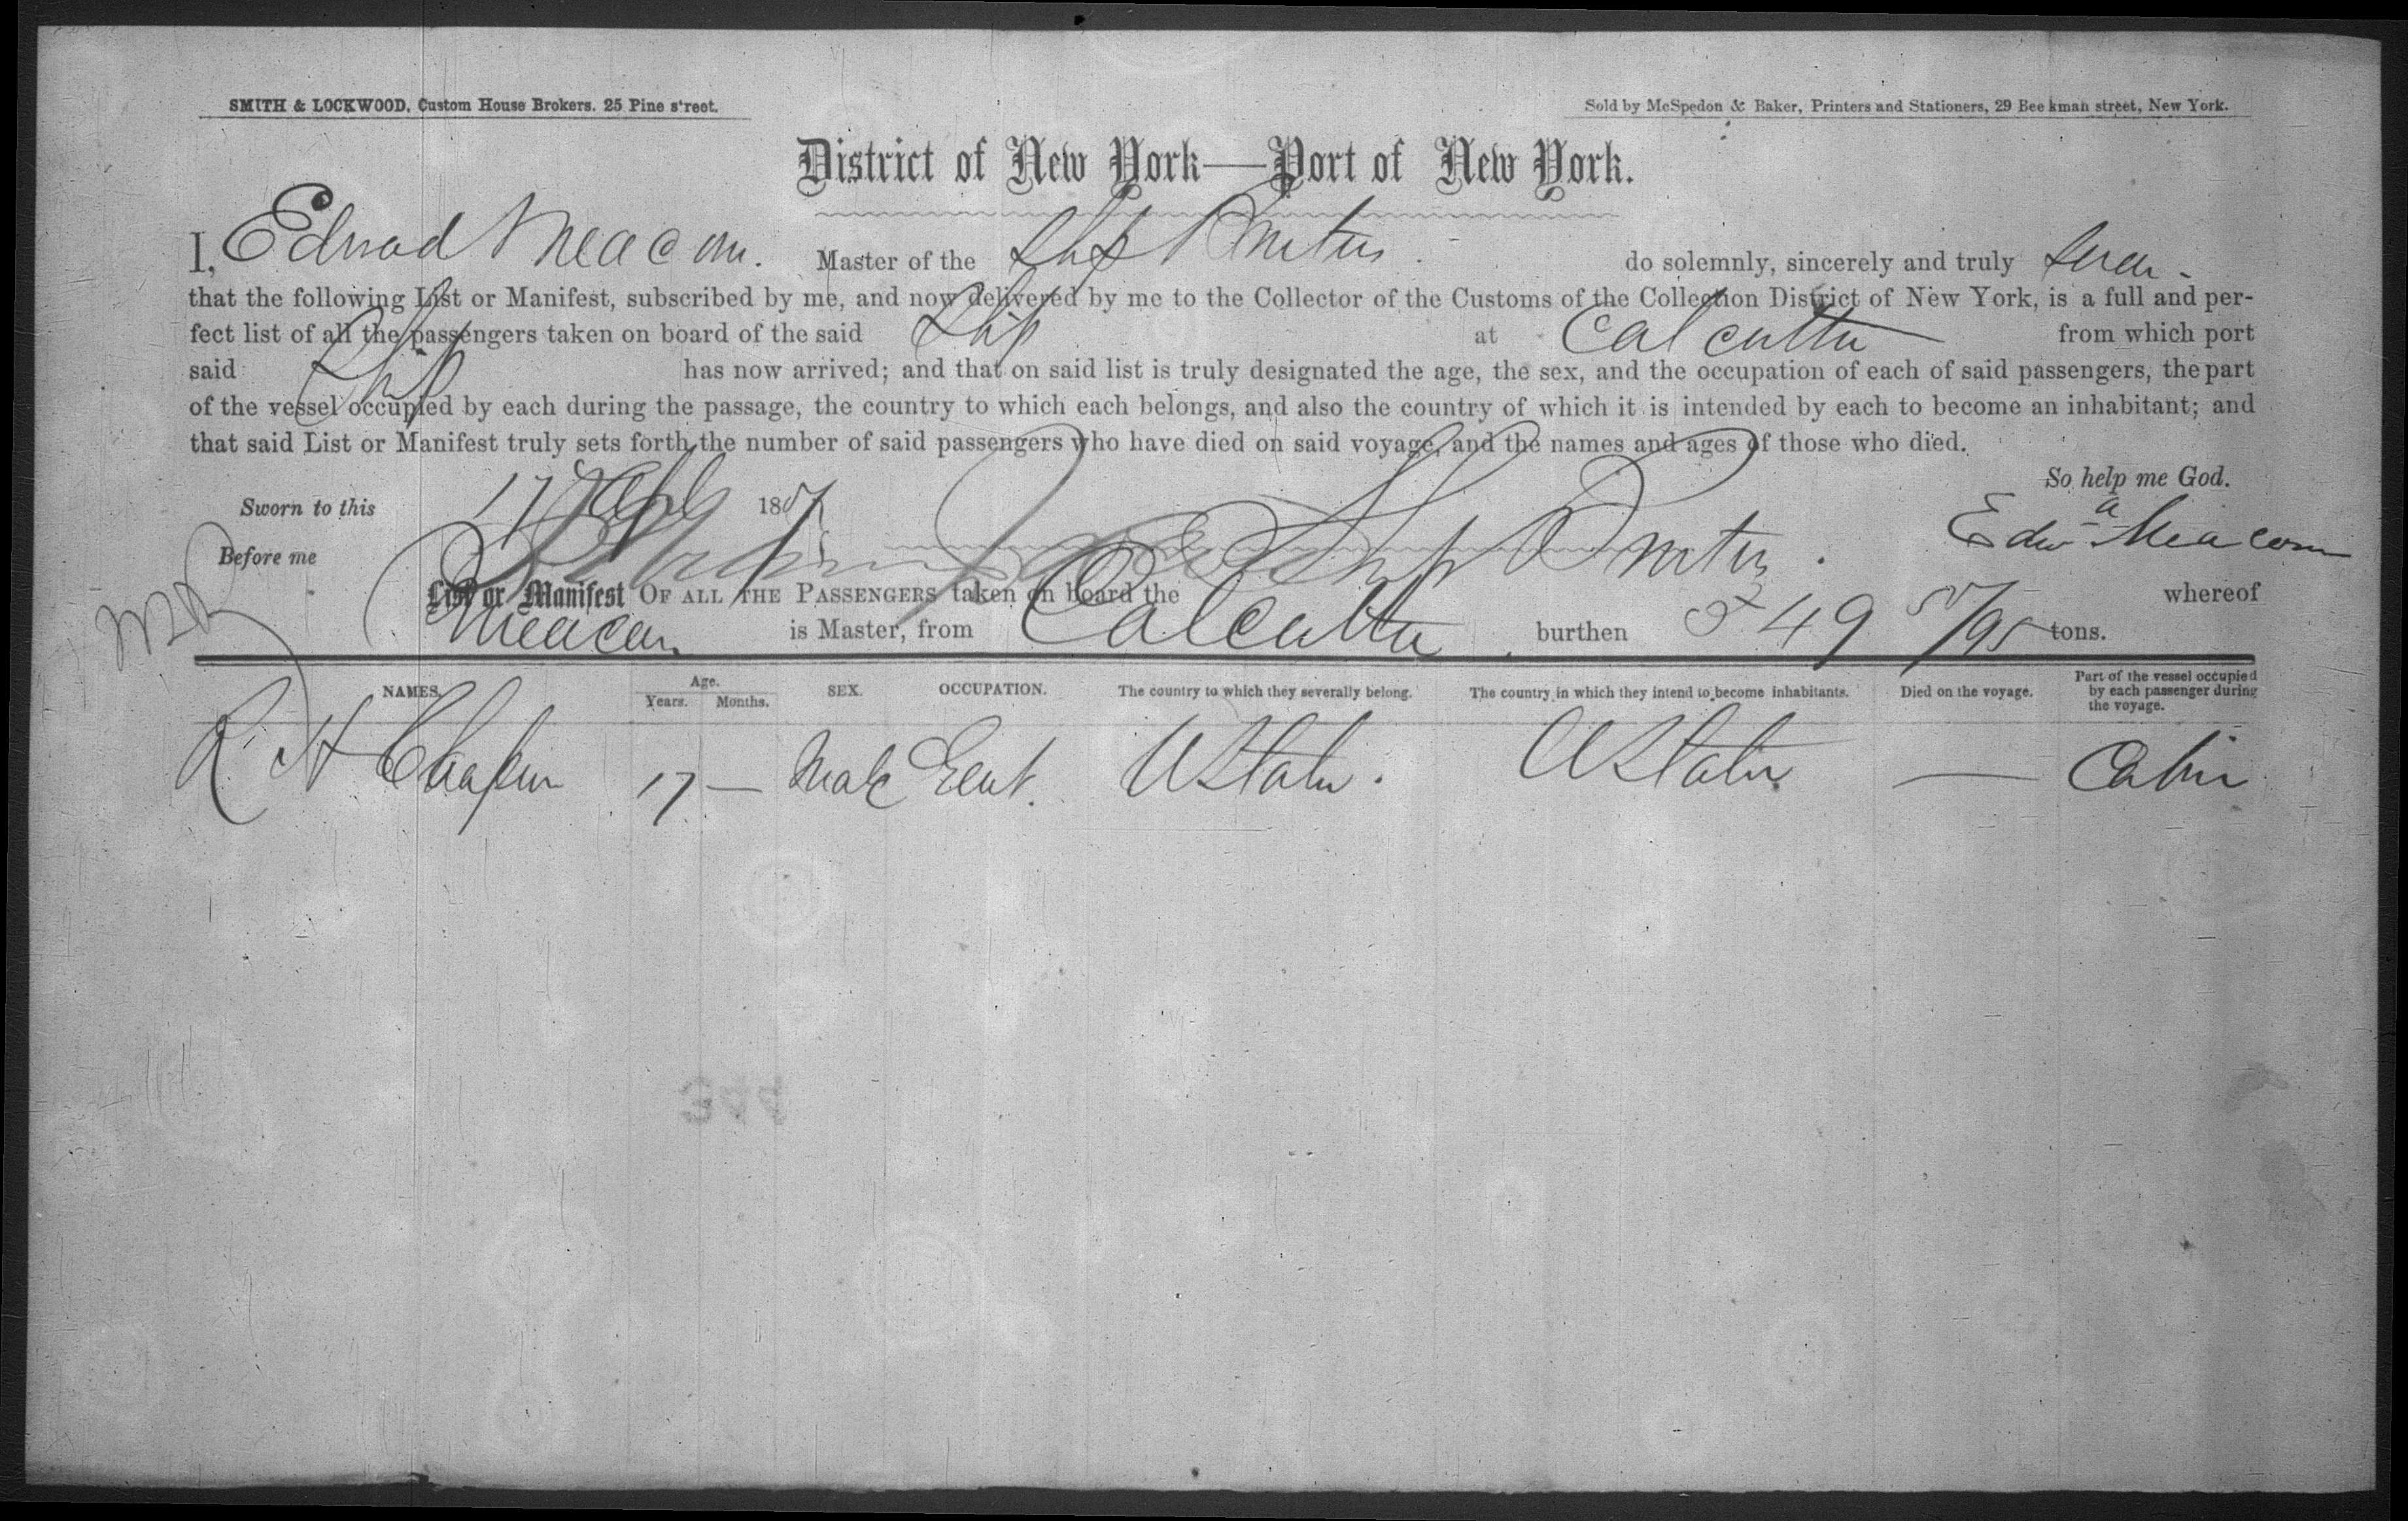 SMITH & LOCKWOOD, Custom House Brokers. 25 Pine street.
Sold by McSpedon & Baker, Printers and Stationers, 29 Beekman street, New York.
District of New York—Port of New York.
I, Edward Meacom. Master of the Ship do solemnly, sincerely and truly swear
that the following List or Manifest, subscribed by me, and now delivered by me to the Collector of the Customs of the Collection District of New York, is a full and per-
fect list of all the passengers taken on board of the said Ship at Calcutta from which port
said Ship has now arrived; and that on said list is truly designated the age, the sex, and the occupation of each of said passengers, the part
of the vessel occupied by each during the passage, the country to which each belongs, and also the country of which it is intended by each to become an inhabitant; and
that said List or Manifest truly sets forth the number of said passengers who have died on said voyage, and the names and ages of those who died.
So help me God.
Sworn to this 17 185
Edwd a Meacom
Before me
List or Manifest OF ALL THE PASSENGERS taken on board the Ship whereof
Meacom is Master, from Calcutta burthen 549 tons.
NAMES. Age. Years. Months. SEX. OCCUPATION. The country to which they severally belong. The country in which they intend to become inhabitants. Died on the voyage. Part of the vessel occupied by each passenger during the voyage.
R H Chapin 17 — Male Gent. U States. U States — Cabin